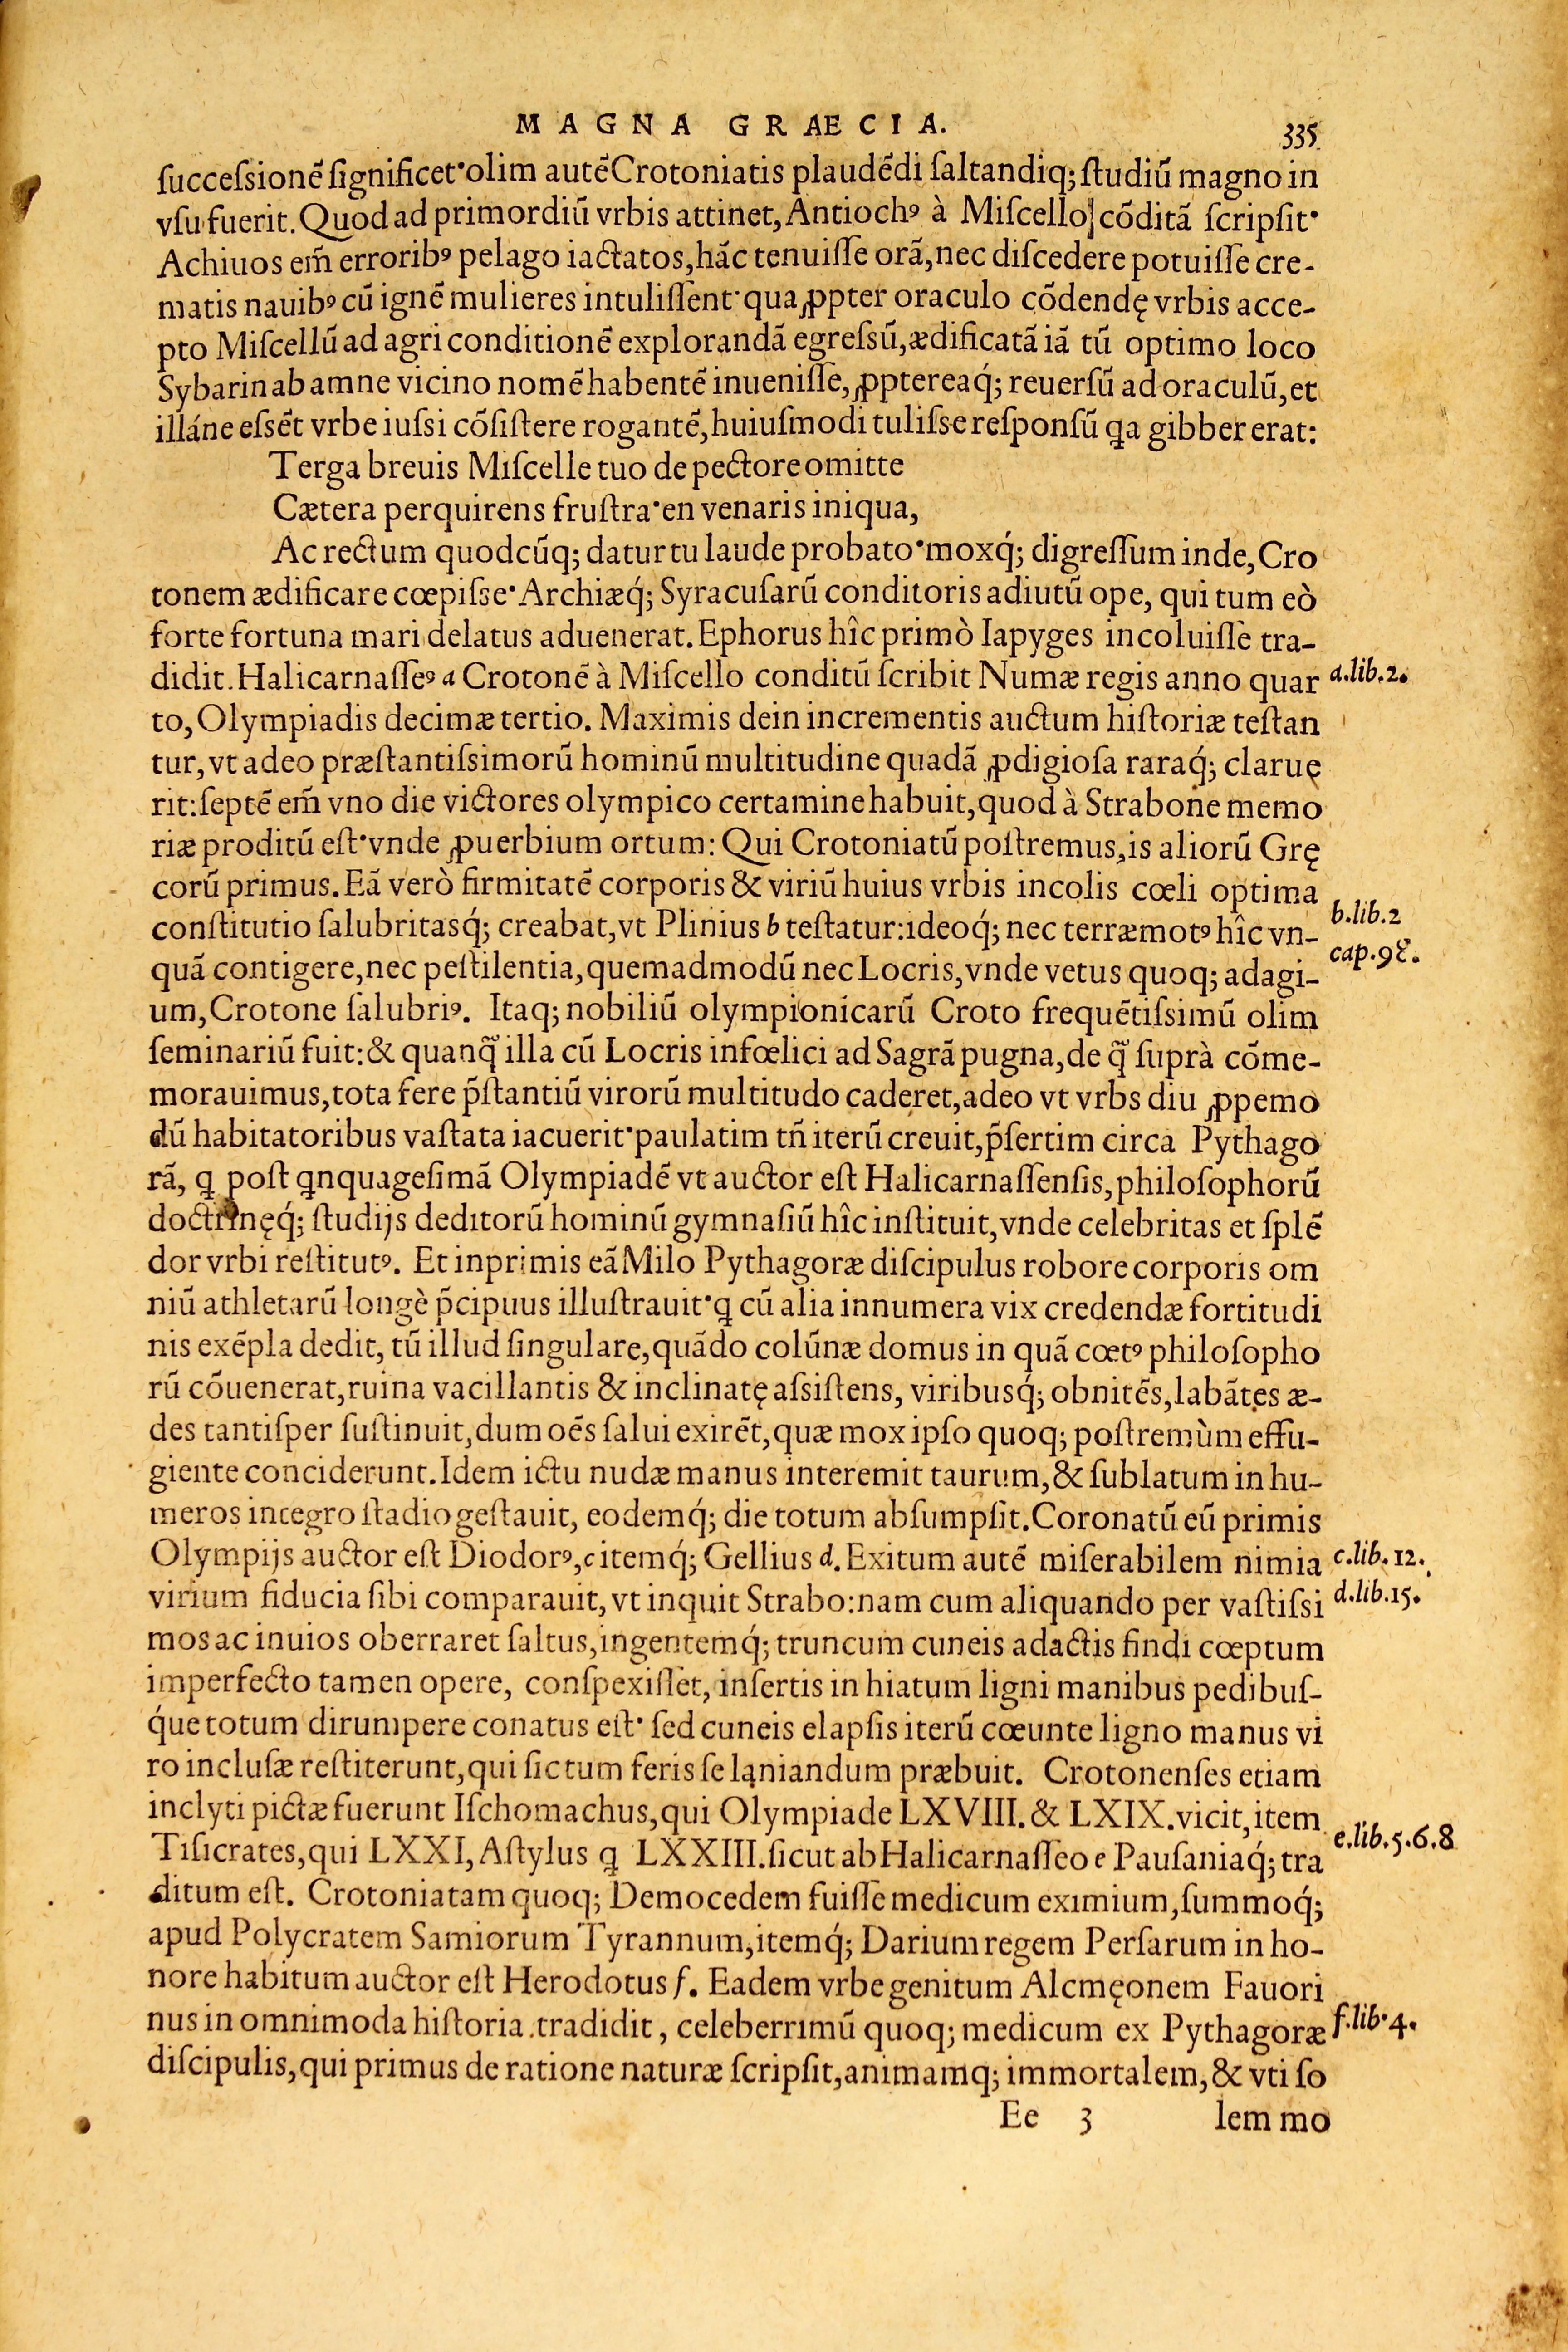 MAGNA GRAECIA. 335
ſucceſsionẽ ſignificet·olim autẽ Crotoniatis plaudẽdi ſaltandiq; ſtudiũ magno in
vſu fuerit. Quod ad primordiũ vrbis attinet, Antiochꝰ à Miſcello cõditã ſcripſit·
Achiuos em̃ erroribꝰ pelago iactatos, hãc tenuiſſe orã, nec diſcedere potuiſſe cre-
matis nauibꝰ cũ ignẽ mulieres intuliſſent· qua ꝓpter oraculo cõdendę vrbis acce-
pto Miſcellũ ad agri conditionẽ explorandã egreſsũ, ædificatã iã tũ optimo loco
Sybarin ab amne vicino nomẽ habentẽ inueniſſe, ꝓptereaq́; reuerſũ ad oraculũ, et
illáne eſsẽt vrbe iuſsi cõſiſtere rogantẽ, huiuſmodi tuliſse reſponſũ ꝗa gibber erat:
Terga breuis Miſcelle tuo de pectore omitte
Cætera perquirens fruſtra·en venaris iniqua,
Ac rectum quodcũq; datur tu laude probato·moxq́; digreſſum inde, Cro
tonem ædificare cœpiſse· Archiæq́; Syracuſarũ conditoris adiutũ ope, qui tum eò
forte fortuna mari delatus aduenerat. Ephorus hîc primò Iapyges incoluiſſe tra-
didit. Halicarnaſſeꝰ a Crotonẽ à Miſcello conditũ ſcribit Numæ regis anno quar a.lib.2.
to, Olympiadis decimæ tertio. Maximis dein incrementis auctum hiſtoriæ teſtan
tur, vt adeo præſtantiſsimorũ hominũ multitudine quadã ꝓdigioſa raraq́; claruę
rit: ſeptẽ em̃ vno die victores olympico certamine habuit, quod à Strabone memo
riæ proditũ eſt·vnde ꝓuerbium ortum: Qui Crotoniatũ poſtremus, is aliorũ Grę
corũ primus. Eã verò firmitatẽ corporis & viriũ huius vrbis incolis cœli optima
conſtitutio ſalubritasq́; creabat, vt Plinius b teſtatur: ideoq́; nec terræmotꝰ hîc vn- b.lib.2
quã contigere, nec peſtilentia, quemadmodũ nec Locris, vnde vetus quoq; adagi- cap.98.
um, Crotone ſalubriꝰ. Itaq; nobiliũ olympionicarũ Croto frequẽtiſsimũ olim
ſeminariũ fuit: & quanq̃ illa cũ Locris infœlici ad Sagrã pugna, de q̃ ſuprà cõme-
morauimus, tota fere p̃ſtantiũ virorũ multitudo caderet, adeo vt vrbs diu ꝓpemo
dũ habitatoribus vaſtata iacuerit·paulatim tñ iterũ creuit, p̃ſertim circa Pythago
rã, ꝗ poſt ꝗnquageſimã Olympiadẽ vt auctor eſt Halicarnaſſenſis, philoſophorũ
doctrinęq́; ſtudijs deditorũ hominũ gymnaſiũ hîc inſtituit, vnde celebritas et ſplẽ
dor vrbi reſtitutꝰ. Et inprimis eã Milo Pythagoræ diſcipulus robore corporis om
niũ athletarũ longè p̃cipuus illuſtrauit·ꝗ cũ alia innumera vix credendæ fortitudi
nis exẽpla dedit, tũ illud ſingulare, quãdo colũnæ domus in quã cœtꝰ philoſopho
rũ cõuenerat, ruina vacillantis & inclinatę aſsiſtens, viribusq́; obnitẽs, labãtes æ-
des tantiſper ſuſtinuit, dum oẽs ſalui exirẽt, quæ mox ipſo quoq; poſtremùm effu-
giente conciderunt. Idem ictu nudæ manus interemit taurum, & ſublatum in hu-
meros integro ſtadio geſtauit, eodemq́; die totum abſumpſit. Coronatũ eũ primis
Olympijs auctor eſt Diodorꝰ, c itemq́; Gellius d. Exitum autẽ miſerabilem nimia c.lib.12.
virium fiducia ſibi comparauit, vt inquit Strabo: nam cum aliquando per vaſtiſsi d.lib.15.
mos ac inuios oberraret ſaltus, ingentemq́; truncum cuneis adactis findi cœptum
imperfecto tamen opere, conſpexiſſet, inſertis in hiatum ligni manibus pedibuſ-
q́ue totum dirumpere conatus eſt· ſed cuneis elapſis iterũ cœunte ligno manus vi
ro incluſæ reſtiterunt, qui ſic tum feris ſe laniandum præbuit. Crotonenſes etiam
inclyti pictæ fuerunt Iſchomachus, qui Olympiade LXVIII. & LXIX. vicit, item
Tiſicrates, qui LXXI, Aſtylus ꝗ LXXIII. ſicut ab Halicarnaſſeo e Pauſaniaq́; tra e.lib.5.6.8
ditum eſt. Crotoniatam quoq; Democedem fuiſſe medicum eximium, ſummoq́;
apud Polycratem Samiorum Tyrannum, itemq́; Darium regem Perſarum in ho-
nore habitum auctor eſt Herodotus f. Eadem vrbe genitum Alcmęonem Fauori
nus in omnimoda hiſtoria tradidit, celeberrimũ quoq; medicum ex Pythagoræ f.lib.4.
diſcipulis, qui primus de ratione naturæ ſcripſit, animamq; immortalem, & vti ſo
Ee 3 lem mo